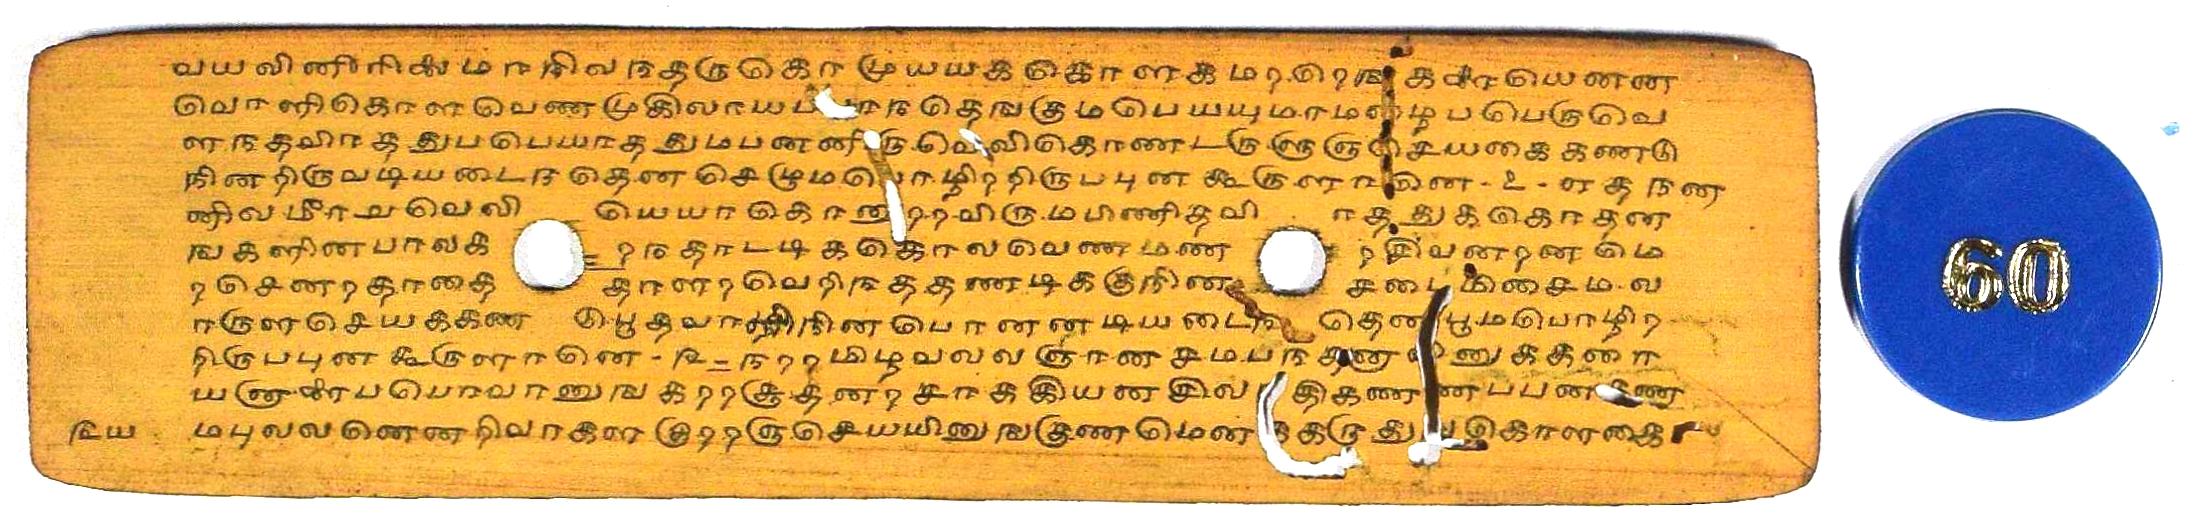 வயலினீரிலை மாநிலநதருகொ முயயககொளகமரறெஙகளை யெனன
வொளிகொளவெணமுகிலாயபபரநதெஙகுமபெயயுமாமழைபபெருவெ
ளநதவிாததுபபெயாததுமபனனிருவெலிகொணடருளுஞசெயகைகணடு
நினறிருவடியடைநதெனசெழுமபொழிறறிருபபுனகூருளானெ-உ-எதநன
னிலமீரறுவெலி யெயாகொனுறறவிருமபிணிதவி ாததுககொதன
ஙகளினபாலக றநதாடடிககொலவெணமண றசிவனறனமெ
றசெனறதாதை தாளறவெறிநததணடிககுநின சடைமிசைமல
ாருளசெயககண டுபூதவாளிநினபொனனடியடைந தெனபூமபொழிற
றிருபபுனகூருளானெ-௩-நறறமிழவலலஞானசமபநதனாவினுககரை
யனாளைபபொவானுஙகறறசூதனறசாககியனசிலநதிகணணபபனகண
மபுலலனெனறிவாகள குறறஞசெயயினுஙகுணமெனககருதுஙகொளகை
௩ய